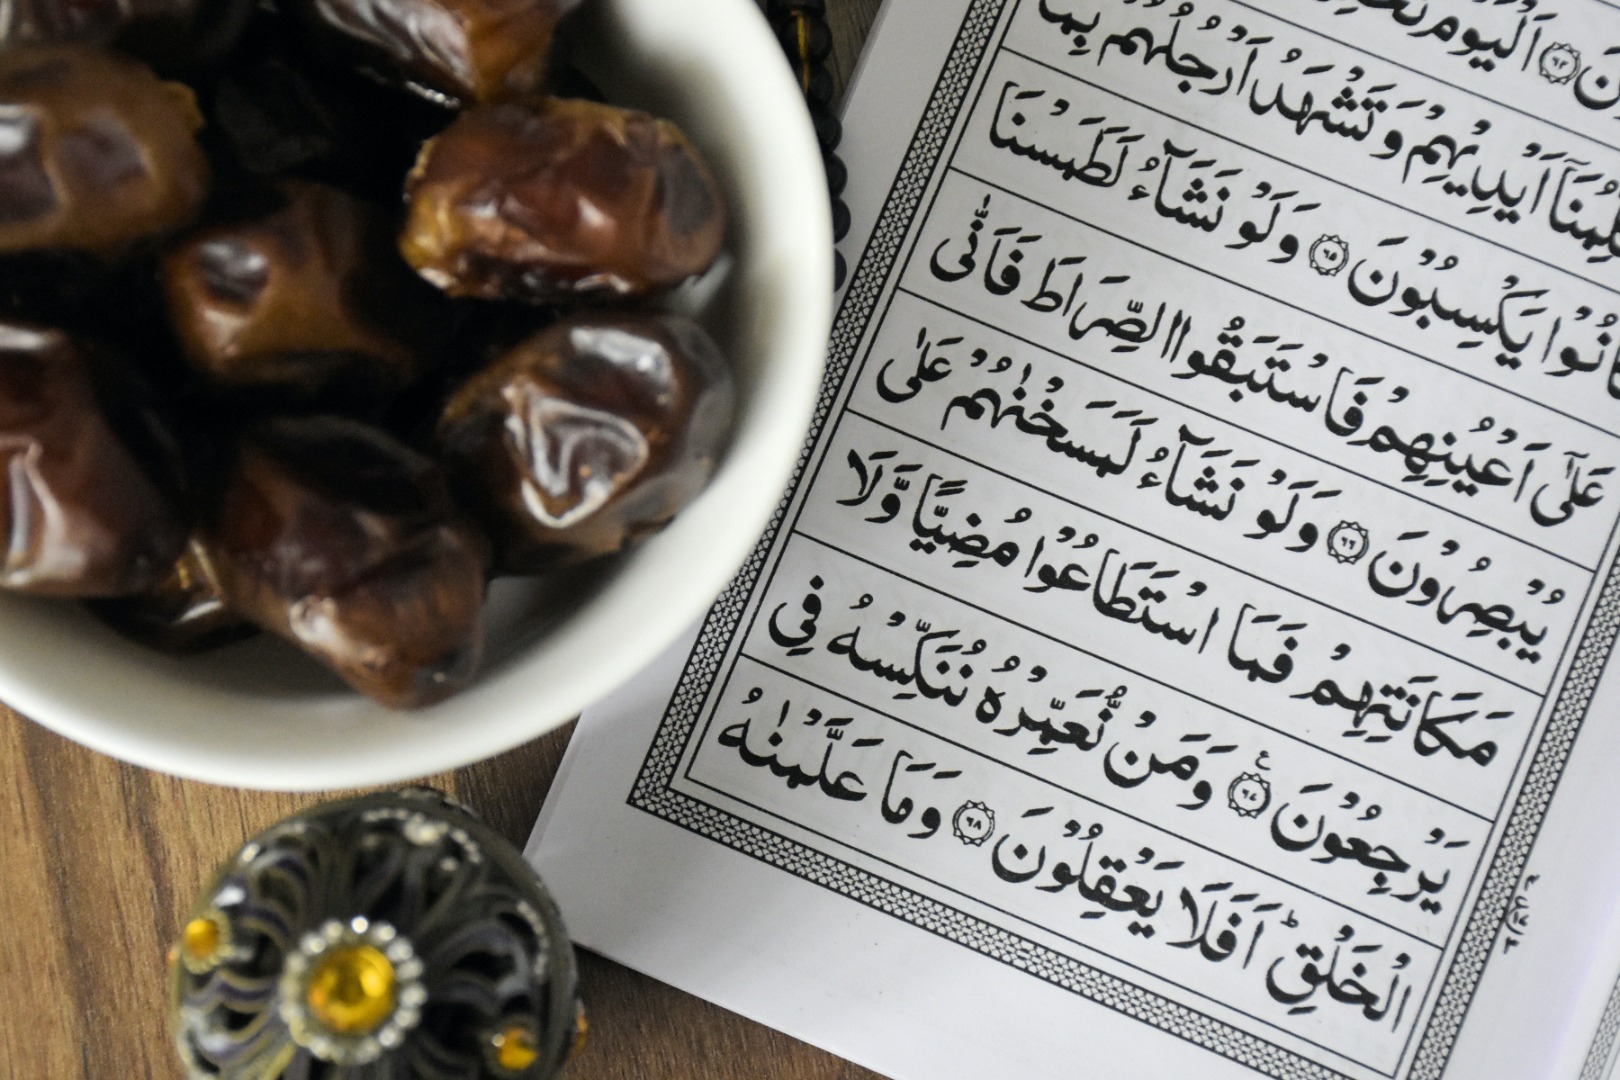 ن ۝٦٣ اَلْيَوْمَ
اَيْدِيْهِمْ وَتَشْهَدُ اَرْجُلُهُمْ بِمَا
يَكْسِبُوْنَ ۝٦٥ وَلَوْ نَشَآءُ لَطَمَسْنَا
عَلٰٓى اَعْيُنِهِمْ فَاسْتَبَقُوا الصِّرَاطَ فَاَنّٰى
يُبْصِرُوْنَ ۝٦٦ وَلَوْ نَشَآءُ لَمَسَخْنٰهُمْ عَلٰى
مَكَانَتِهِمْ فَمَا اسْتَطَاعُوْا مُضِيًّا وَّلَا
يَرْجِعُوْنَ ۝٦٧ ع وَمَنْ نُّعَمِّرْهُ نُنَكِّسْهُ فِي
الْخَلْقِ ؕ اَفَلَا يَعْقِلُوْنَ ۝٦٨ وَمَا عَلَّمْنٰهُ